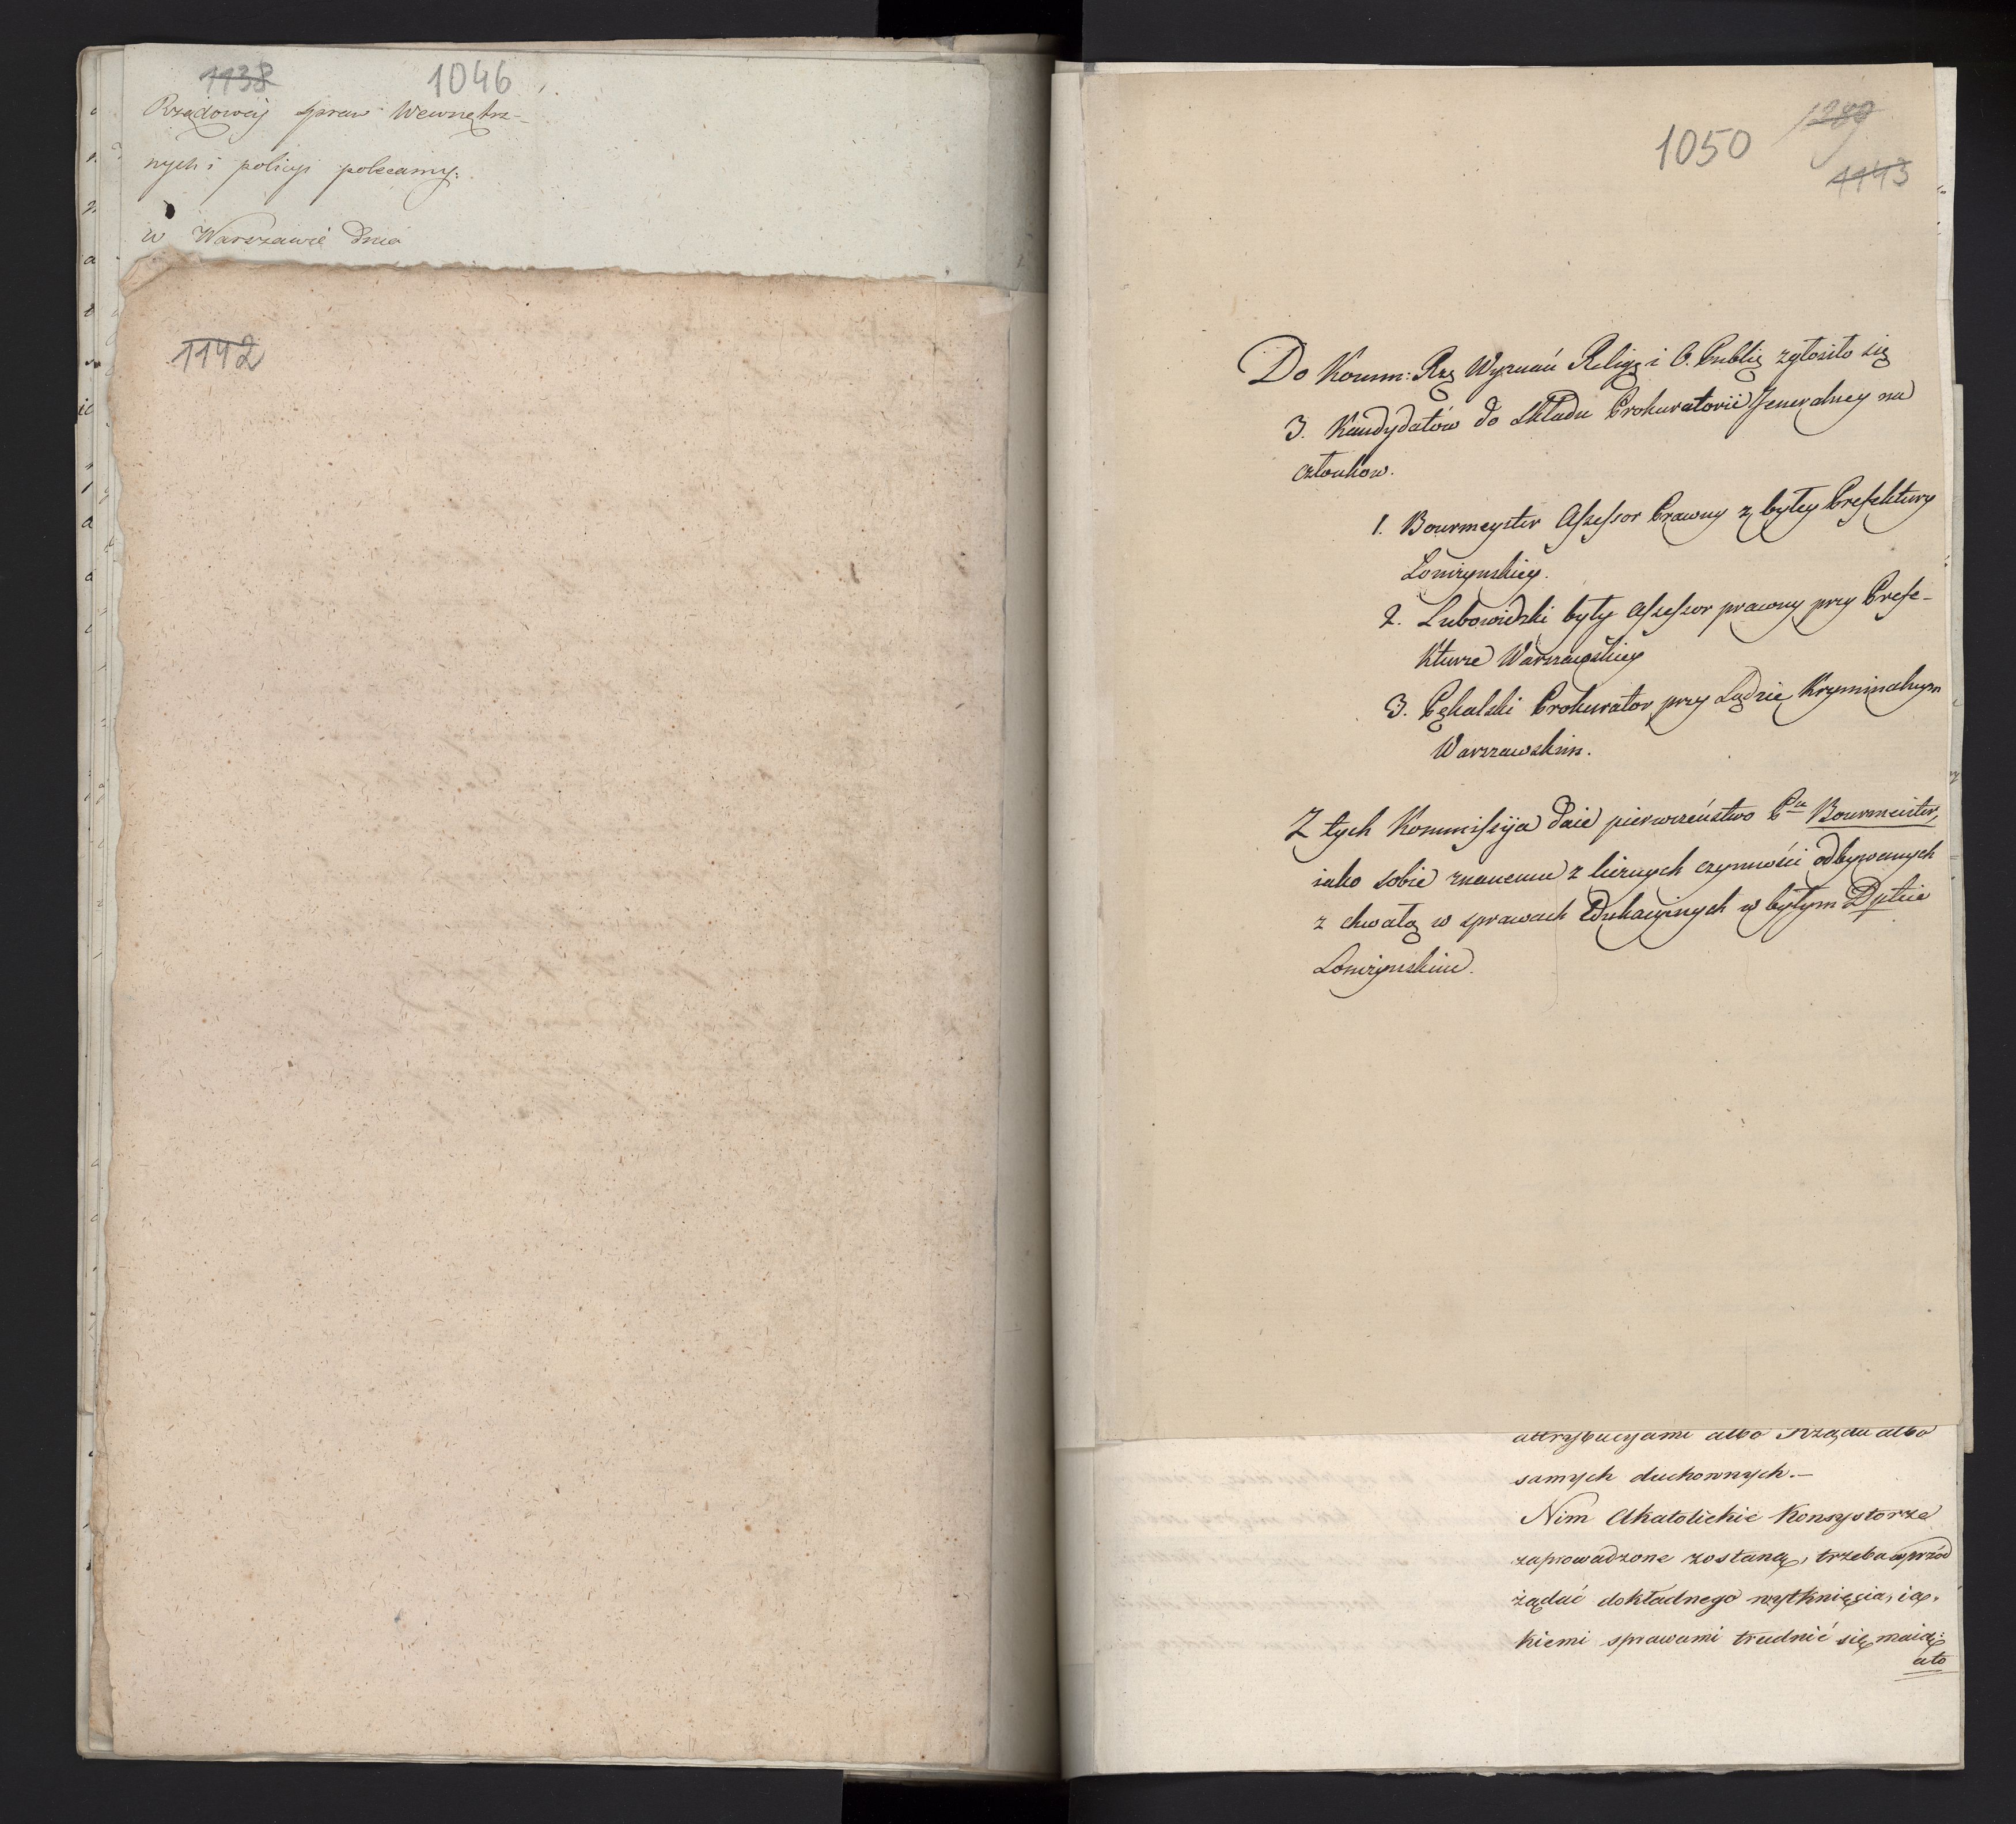 1138 1046
Rządowéj spraw Wewnętrz-
nych i policyi polecamy.
w Warszawie dnia
1142
1050 1289
1143
Do Komm: Rzą Wyznań Religij i O. Publię zgłosiło się
3. Kandydatów do składu Prokuratorii Jeneralney na
członkow.
1. Bourmeyster Assessor Prawny z byłey Prefektury
Łomżynskiey.
2. Lubowidzki były Assessor prawny przy Prefe-
kturze Warszawskiey
3. Pękalski Prokurator przy Sądzie Kryminalnym
Warszawskim.
Z tych Kommissyja daie pierwszeństwo Pu Bourmeister,
iako sobie znanemu z licznych czynności odbywanych
z chwałą w sprawach Edukacyinych w byłym Dptcie
Łomżynskim.
attrybucyami albo Rządu albo
samych duchownych.—
Nim Akatolickie Konsystorze
zaprowadzone zostaną, trzeba wprzód
żądać dokładnego wytknięcia, ia-
kiemi sprawami trudnić się maią:
ato